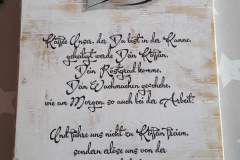 Kaffee Unser, der Du bist in der Kanne,
geheiligt werde Dein Koffein,
Dein Röstgrad komme,
Dein Wachmachen geschehe,
wie am Morgen, so auch bei der Arbeit.
Und führe uns nicht zu Koffein freiem,
sondern erlöse uns von der